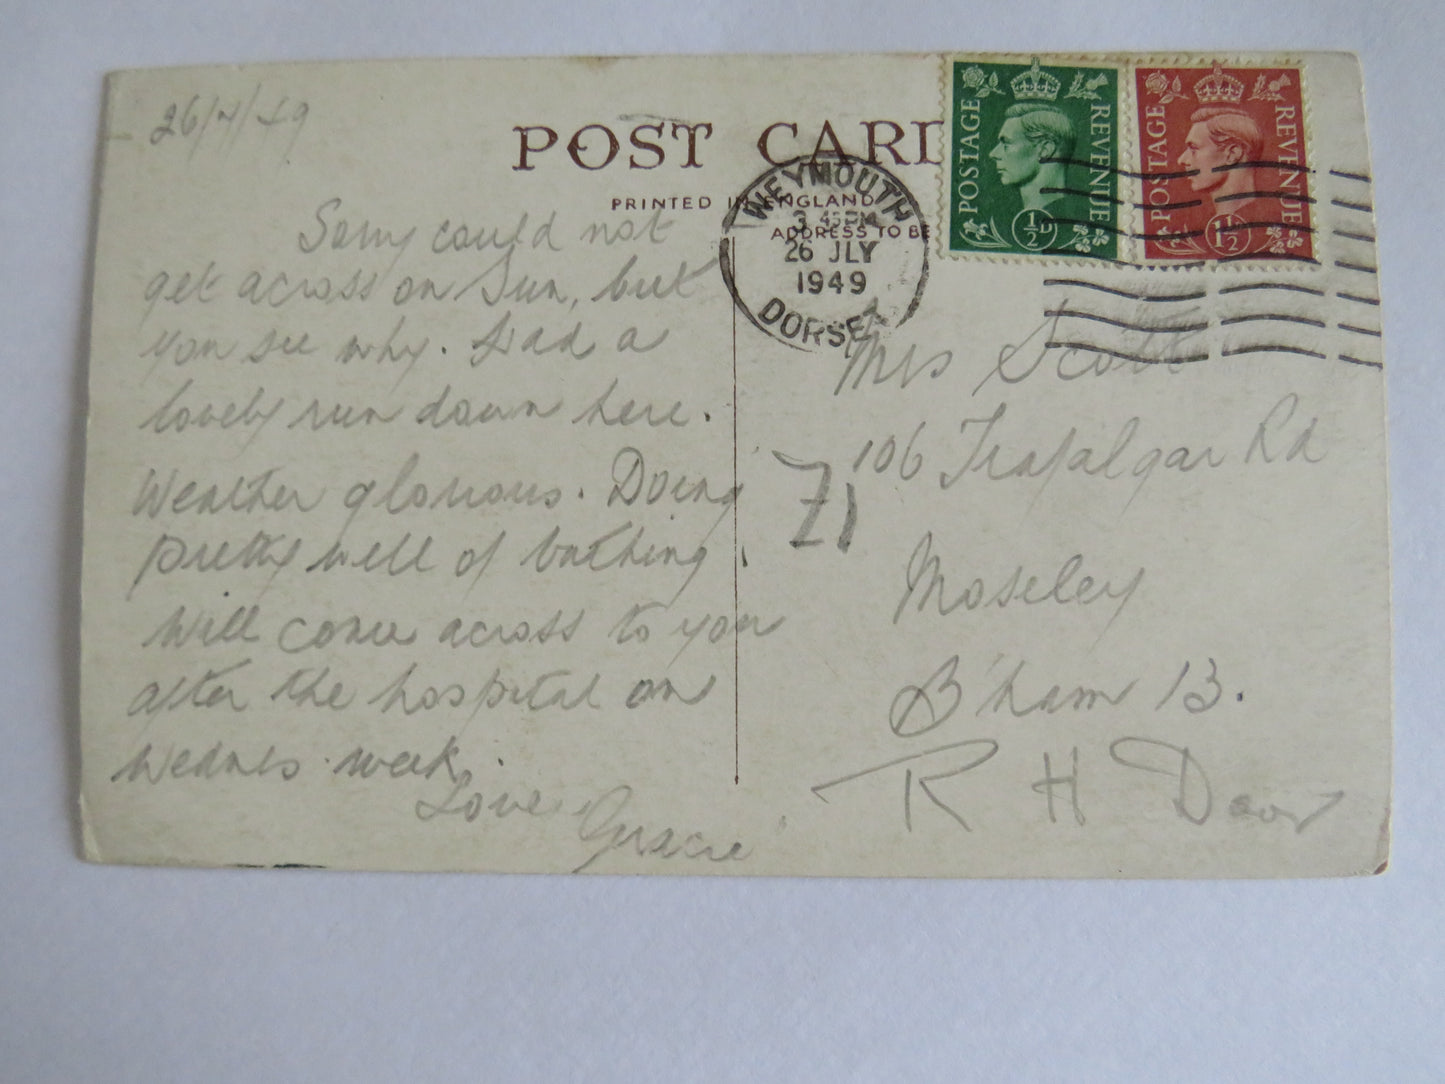 26/7/49
POST CARD
PRINTED IN ENGLAND
ADDRESS TO BE
POSTAGE REVENUE
½D
POSTAGE REVENUE
1½D
WEYMOUTH
3 45 PM
26 JLY
1949
DORSET
Sorry could not
get across on Sun, but
you see why. Had a
lovely run down here.
Weather glorious. Doing
pretty well of bathing.
Will come across to you
after the hospital on
Wednes. week.
Love,
Gracie
Mrs Scott
106 Trafalgar Rd
Moseley
B'ham 13.
R H Door
71